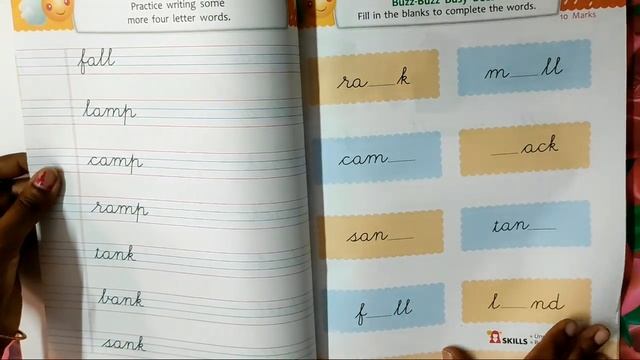 Practice writing some
more four letter words.
fall
lamp
camp
ramp
tank
bank
sank
Fill in the blanks to complete the words.
10 Marks
ra__k
m__ll
cam__
__ack
san__
tan__
f__ll
l__nd
SKILLS